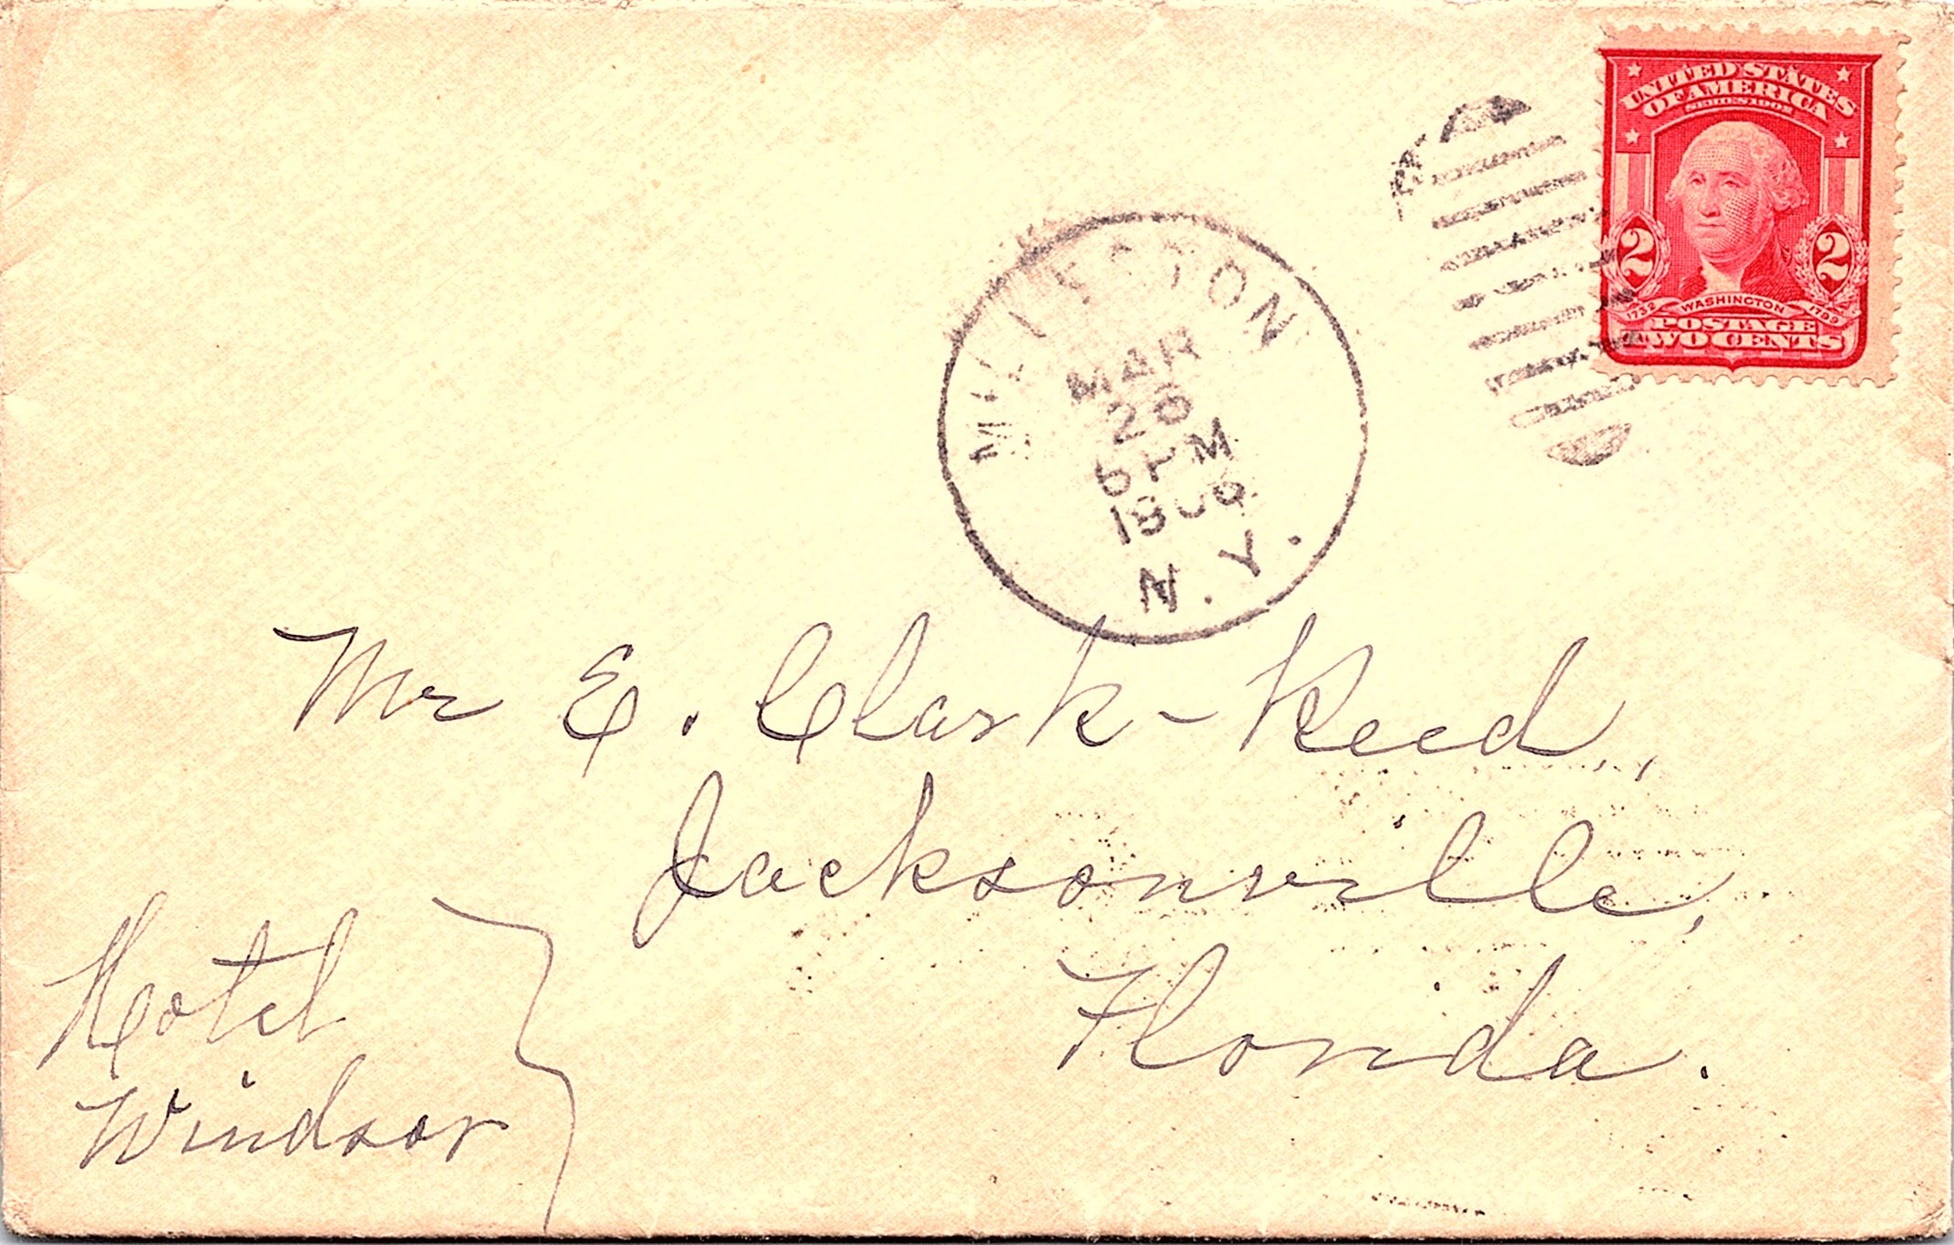 UNITED STATES
OF AMERICA
SERIES 1902
2 2
1732 WASHINGTON 1799
POSTAGE
TWO CENTS
MAR
5 PM
N.Y.
Mr E. Clark-Reed,
Jacksonville,
Florida.
Hotel
Windsor